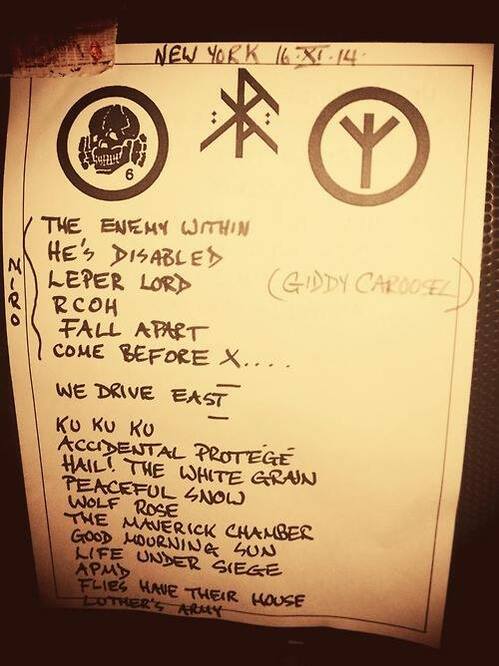 NEW YORK 16·XI·14·
6
THE ENEMY WITHIN
HE'S DISABLED
LEPER LORD
(GIDDY CAROUSEL)
RCOH
FALL APART
COME BEFORE X....
MIRO
WE DRIVE EAST
KU KU KU
ACCIDENTAL PROTÉGÉ
HAIL! THE WHITE GRAIN
PEACEFUL SNOW
WOLF ROSE
THE MAVERICK CHAMBER
GOOD MOURNING SUN
LIFE UNDER SIEGE
APMD
FLIES HAVE THEIR HOUSE
LUTHER'S ARMY